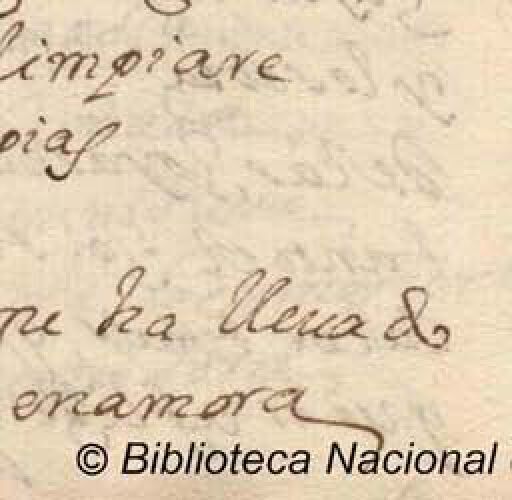 limpiare
pias
me ha lleuado
enamora
© Biblioteca Nacional